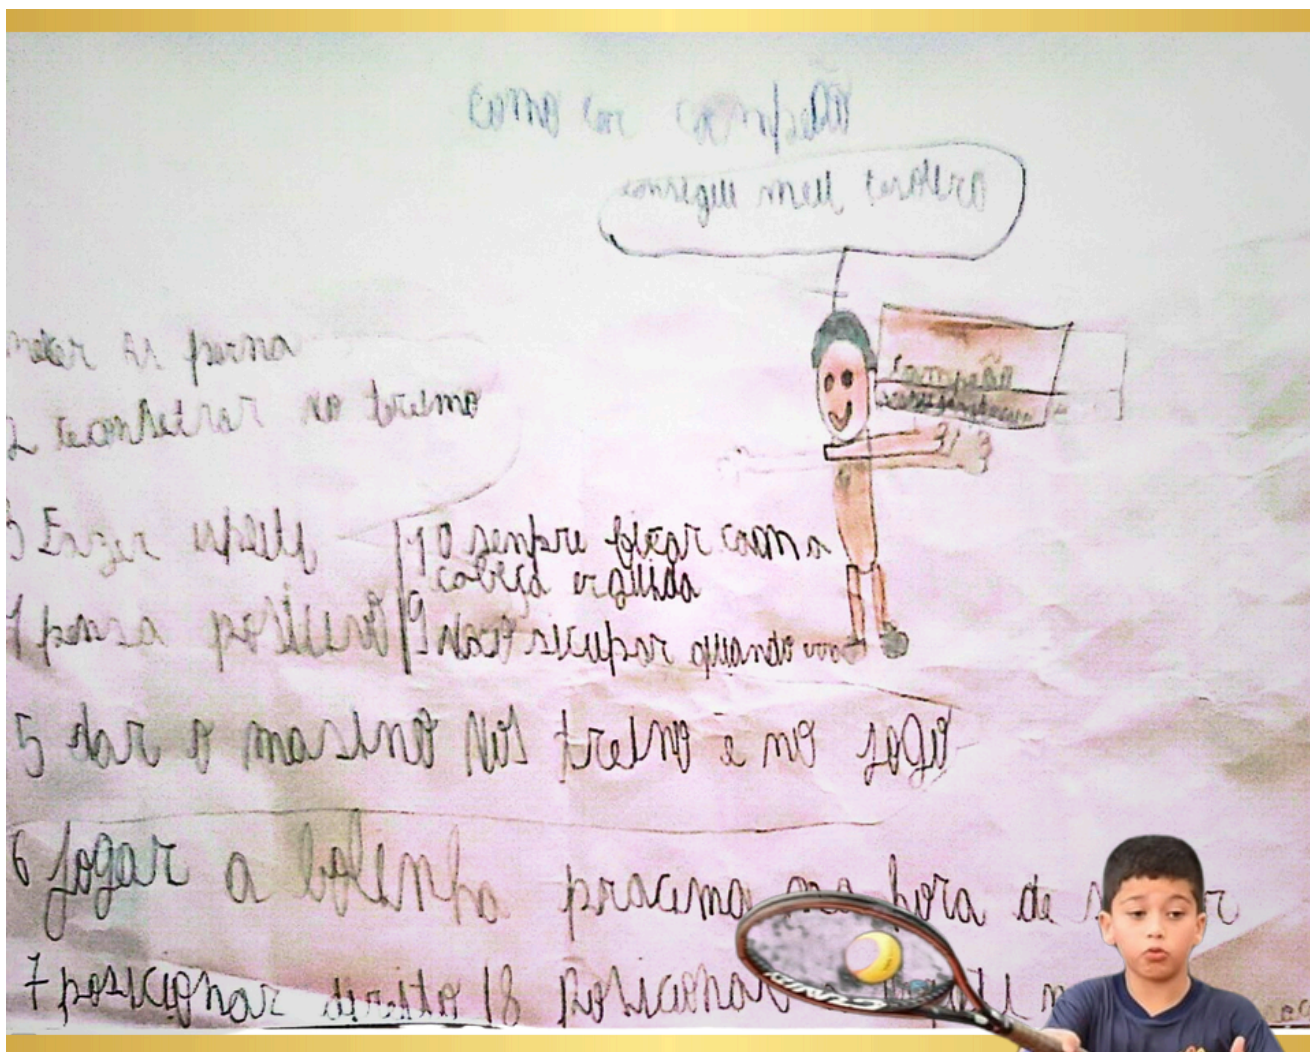 como ser campeão
consegui meu tesouro
campeão
meter as perna
2 no treimo
3 Fazer
4 pensa positivo
10 senpre focar com a
cabeça erguida
9 Não siculpar quando
5 dar o masino nos treino e no jogo
6 jogar a bolinha pracima na hora de
7 posicionar direito 8 Posicionar